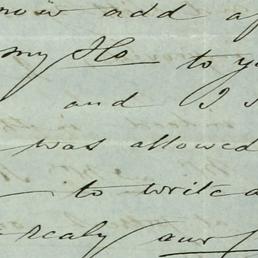 now add a
my Ho to y
and I
was allowed
to write a
realy our